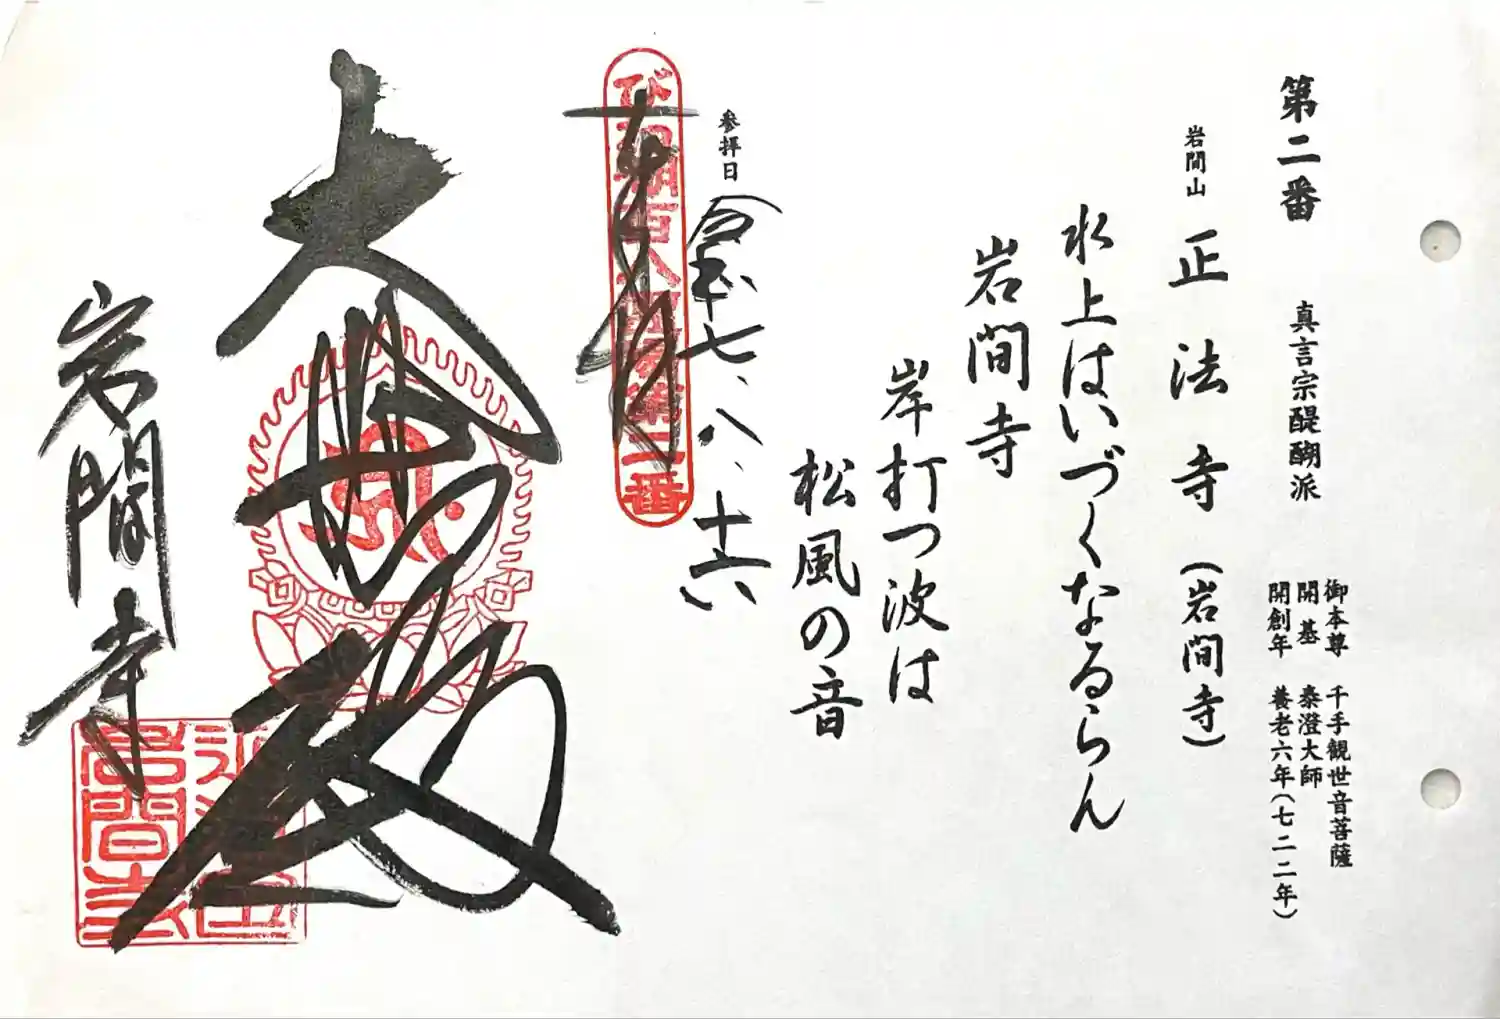 第二番 真言宗醍醐派
御本尊 千手観世音菩薩
開基 泰澄大師
開創年 養老六年(七二二年)
岩間山 正法寺(岩間寺)
水上はいづくなるらん
岩間寺
岸打つ波は
松風の音
参拝日 令和七、八、十六
奉拝
びわ湖百八霊場第二番
大悲殿
岩間寺
岩間寺